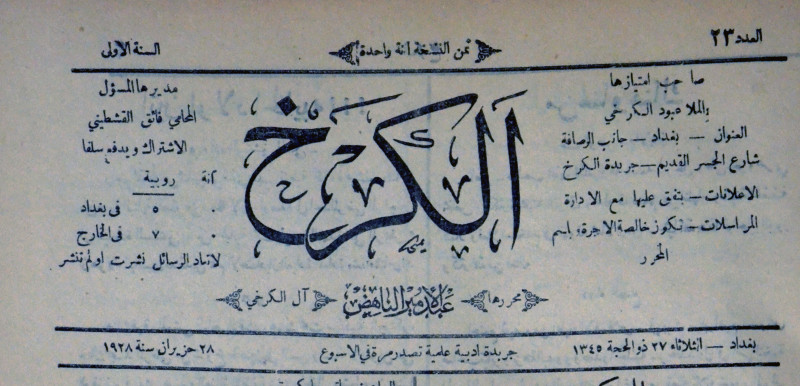 العدد ٢٣
ثمن النسخة آنة واحدة
السنة الاولى
صاحب امتيازها
الملا عبود الكرخي
العنوان — بغداد — جانب الرصافة
شارع الجسر القديم — جريدة الكرخ
الاعلانات — يتفق عليها مع الادارة
المراسلات — تكون خالصة الاجرة، باسم
المحرر
الكرخ
مديرها المسؤل
المحامي فائق القشطيني
الاشتراك ويدفع سلفا
آنة روبية
٠ ٥ في بغداد
٠ ٧ في الخارج
لاتعاد الرسائل نشرت او لم تنشر
محررها عبدالامير الناهض آل الكرخي
بغداد — الثلاثاء ٢٧ ذو الحجة ١٣٤٥ جريدة ادبية علمية تصدر مرة في الاسبوع ٢٨ حزيران سنة ١٩٢٨